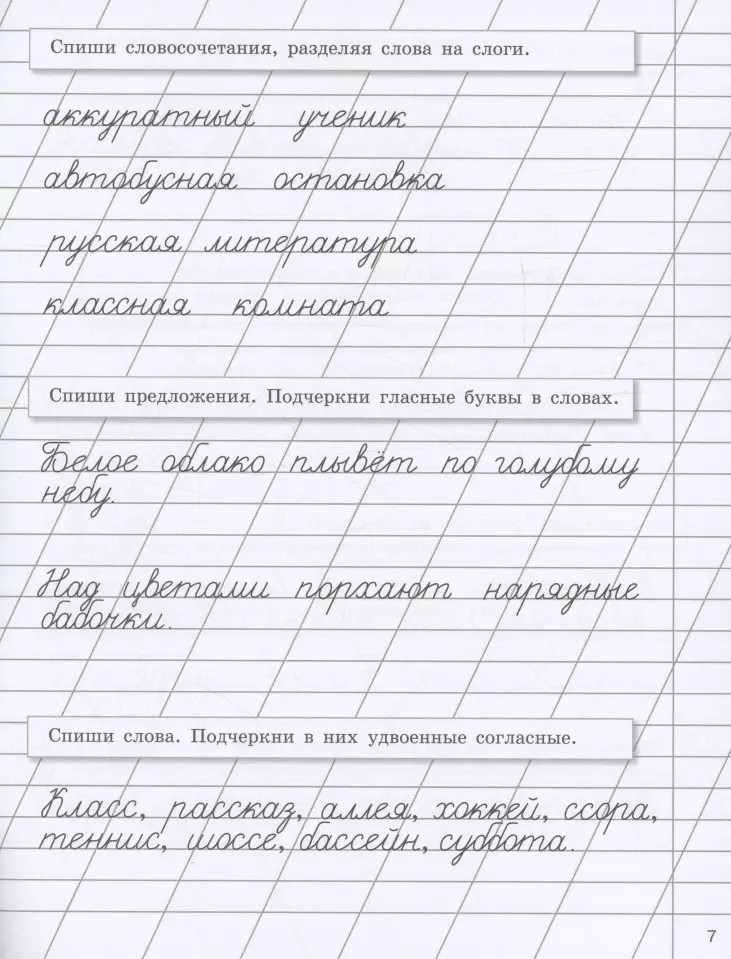 Спиши словосочетания, разделяя слова на слоги.
аккуратный ученик
автобусная остановка
русская литература
классная комната
Спиши предложения. Подчеркни гласные буквы в словах.
Белое облако плывёт по голубому
небу.
Над цветами порхают нарядные
бабочки.
Спиши слова. Подчеркни в них удвоенные согласные.
Класс, рассказ, аллея, хоккей, ссора,
теннис, шоссе, бассейн, суббота.
7